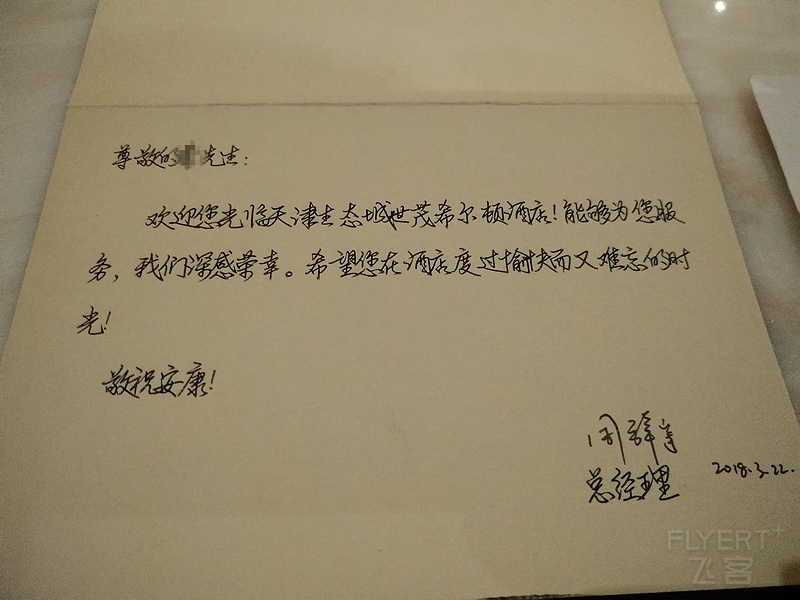 尊敬的 先生：
欢迎您光临天津生态城世茂希尔顿酒店！能够为您服
务，我们深感荣幸。希望您在酒店度过愉快而又难忘的时
光！
敬祝安康！
周
总经理 2018.3.22.
FLYERT+
飞客